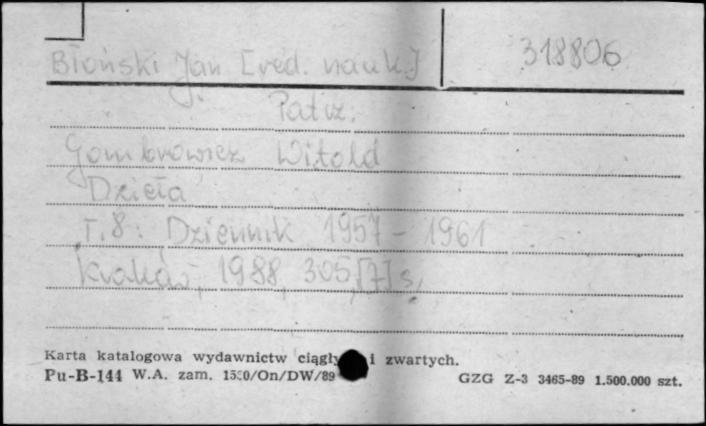 Błoński Jan [red. nauk.] 318806
Patrz:
Gombrowicz Witold
Dzieła
T.8: Dziennik 1957 - 1961
Kraków, 1988, 305,[7] s.
Karta katalogowa wydawnictw ciągły i zwartych.
Pu-B-144 W.A. zam. /On/DW/89 GZG Z-3 3465-89 1.500.000 szt.